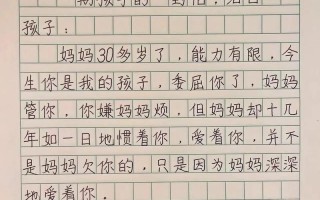 孩子：
妈妈30多岁了，能力有限，今
生你是我的孩子，委屈你了，妈妈
管你，你嫌妈妈烦，但妈妈却十几
年如一日地惯着你，爱着你，并不
是妈妈欠你的，只是因为妈妈深深
地爱着你．